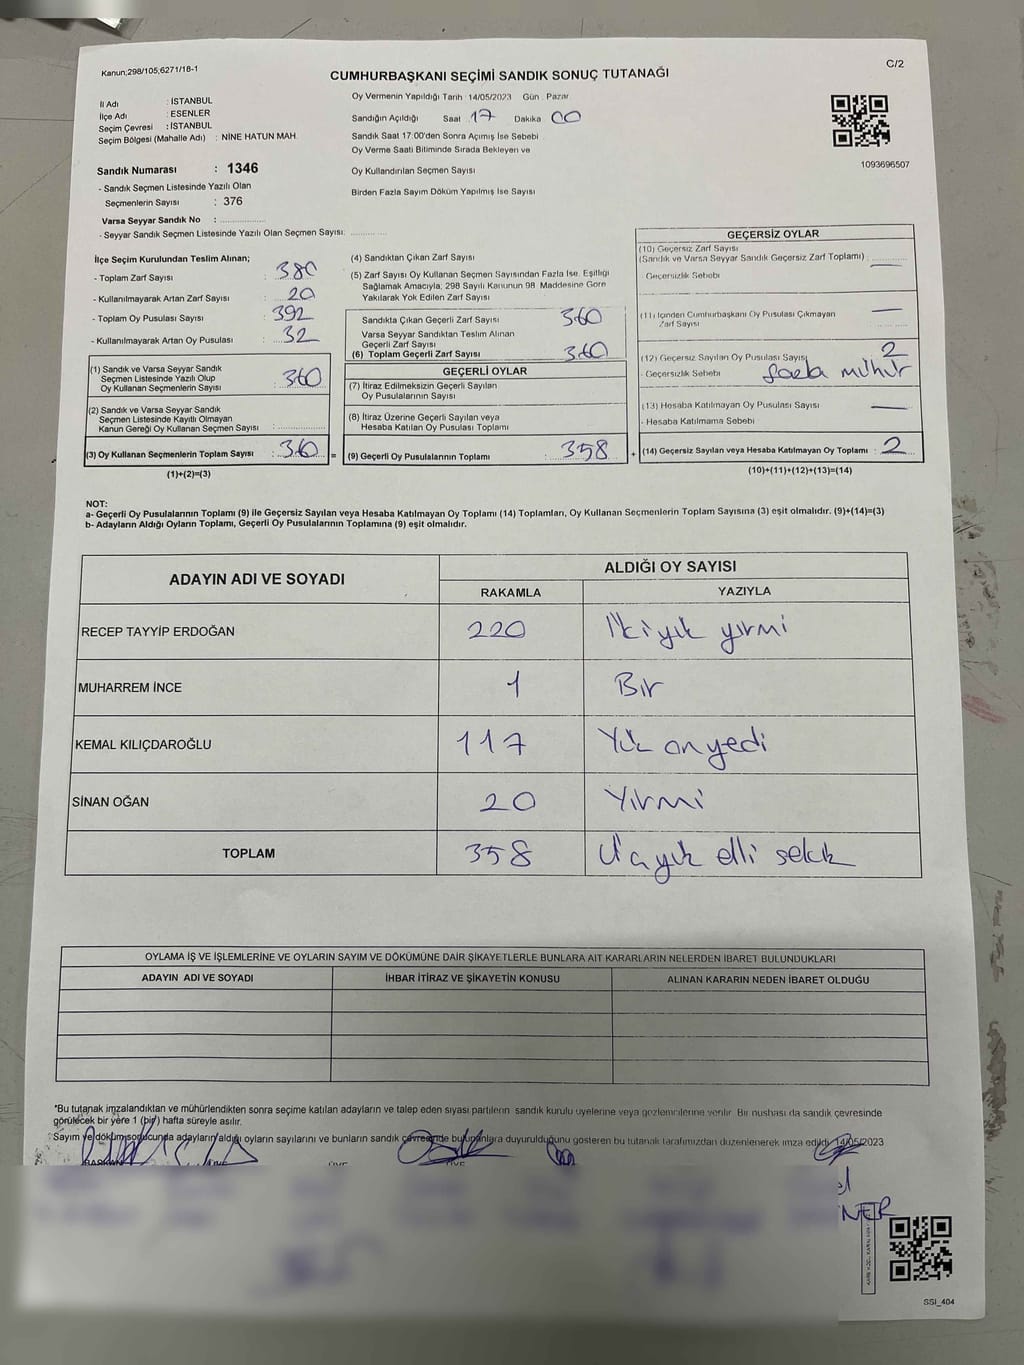 Kanun;298/105,6271/18-1
CUMHURBAŞKANI SEÇİMİ SANDIK SONUÇ TUTANAĞI
C/2
İl Adı : İSTANBUL
İlçe Adı : ESENLER
Seçim Çevresi : İSTANBUL
Seçim Bölgesi (Mahalle Adı) : NİNE HATUN MAH.
Sandık Numarası : 1346
- Sandık Seçmen Listesinde Yazılı Olan
Seçmenlerin Sayısı : 376
Varsa Seyyar Sandık No :
- Seyyar Sandık Seçmen Listesinde Yazılı Olan Seçmen Sayısı:
Oy Vermenin Yapıldığı Tarih 14/05/2023 Gün : Pazar
Sandığın Açıldığı Saat 17 Dakika 00
Sandık Saat 17:00'den Sonra Açımış İse Sebebi
Oy Verme Saati Bitiminde Sırada Bekleyen ve
Oy Kullandırılan Seçmen Sayısı
Birden Fazla Sayım Döküm Yapılmış İse Sayısı
1093696507
İlçe Seçim Kurulundan Teslim Alınan;
- Toplam Zarf Sayısı : 380
- Kullanılmayarak Artan Zarf Sayısı : 20
- Toplam Oy Pusulası Sayısı : 392
- Kullanılmayarak Artan Oy Pusulası : 32
(1) Sandık ve Varsa Seyyar Sandık
Seçmen Listesinde Yazılı Olup
Oy Kullanan Seçmenlerin Sayısı : 360
(2) Sandık ve Varsa Seyyar Sandık
Seçmen Listesinde Kayıtlı Olmayan
Kanun Gereği Oy Kullanan Seçmen Sayısı :
(3) Oy Kullanan Seçmenlerin Toplam Sayısı : 360 =
(1)+(2)=(3)
(4) Sandıktan Çıkan Zarf Sayısı
(5) Zarf Sayısı Oy Kullanan Seçmen Sayısından Fazla İse, Eşitliği
Sağlamak Amacıyla; 298 Sayılı Kanunun 98. Maddesine Göre
Yakılarak Yok Edilen Zarf Sayısı
Sandıkta Çıkan Geçerli Zarf Sayısı 360
Varsa Seyyar Sandıktan Teslim Alınan
Geçerli Zarf Sayısı
(6) Toplam Geçerli Zarf Sayısı 360
GEÇERLİ OYLAR
(7) İtiraz Edilmeksizin Geçerli Sayılan
Oy Pusulalarının Sayısı
(8) İtiraz Üzerine Geçerli Sayılan veya
Hesaba Katılan Oy Pusulası Toplamı
(9) Geçerli Oy Pusulalarının Toplamı : 358 +
GEÇERSİZ OYLAR
(10) Geçersiz Zarf Sayısı
(Sandık ve Varsa Seyyar Sandık Geçersiz Zarf Toplamı)
- Geçersizlik Sebebi
(11) İçinden Cumhurbaşkanı Oy Pusulası Çıkmayan
Zarf Sayısı
(12) Geçersiz Sayılan Oy Pusulası Sayısı 2
- Geçersizlik Sebebi fazla mühür
(13) Hesaba Katılmayan Oy Pusulası Sayısı
- Hesaba Katılmama Sebebi
(14) Geçersiz Sayılan veya Hesaba Katılmayan Oy Toplamı : 2
(10)+(11)+(12)+(13)=(14)
NOT:
a- Geçerli Oy Pusulalarının Toplamı (9) ile Geçersiz Sayılan veya Hesaba Katılmayan Oy Toplamı (14) Toplamları, Oy Kullanan Seçmenlerin Toplam Sayısına (3) eşit olmalıdır. (9)+(14)=(3)
b- Adayların Aldığı Oyların Toplamı, Geçerli Oy Pusulalarının Toplamına (9) eşit olmalıdır.
ADAYIN ADI VE SOYADI
ALDIĞI OY SAYISI
RAKAMLA YAZIYLA
RECEP TAYYİP ERDOĞAN 220 İkiyüz yirmi
MUHARREM İNCE 1 Bir
KEMAL KILIÇDAROĞLU 117 Yüz onyedi
SİNAN OĞAN 20 Yirmi
TOPLAM 358 Üçyüz elli sekiz
OYLAMA İŞ VE İŞLEMLERİNE VE OYLARIN SAYIM VE DÖKÜMÜNE DAİR ŞİKAYETLERLE BUNLARA AİT KARARLARIN NELERDEN İBARET BULUNDUKLARI
ADAYIN ADI VE SOYADI İHBAR İTİRAZ VE ŞİKAYETİN KONUSU ALINAN KARARIN NEDEN İBARET OLDUĞU
*Bu tutanak imzalandıktan ve mühürlendikten sonra seçime katılan adayların ve talep eden siyasi partilerin sandık kurulu üyelerine veya gözlemcilerine verilir. Bir nüshası da sandık çevresinde
görülecek bir yere 1 (bir) hafta süreyle asılır.
Sayım ve döküm sonucunda adayların aldığı oyların sayılarını ve bunların sandık çevresinde bulunanlara duyurulduğunu gösteren bu tutanak tarafımızdan düzenlenerek imza edildi. 14/05/2023
BAŞKAN ÜYE ÜYE
SSİ_404